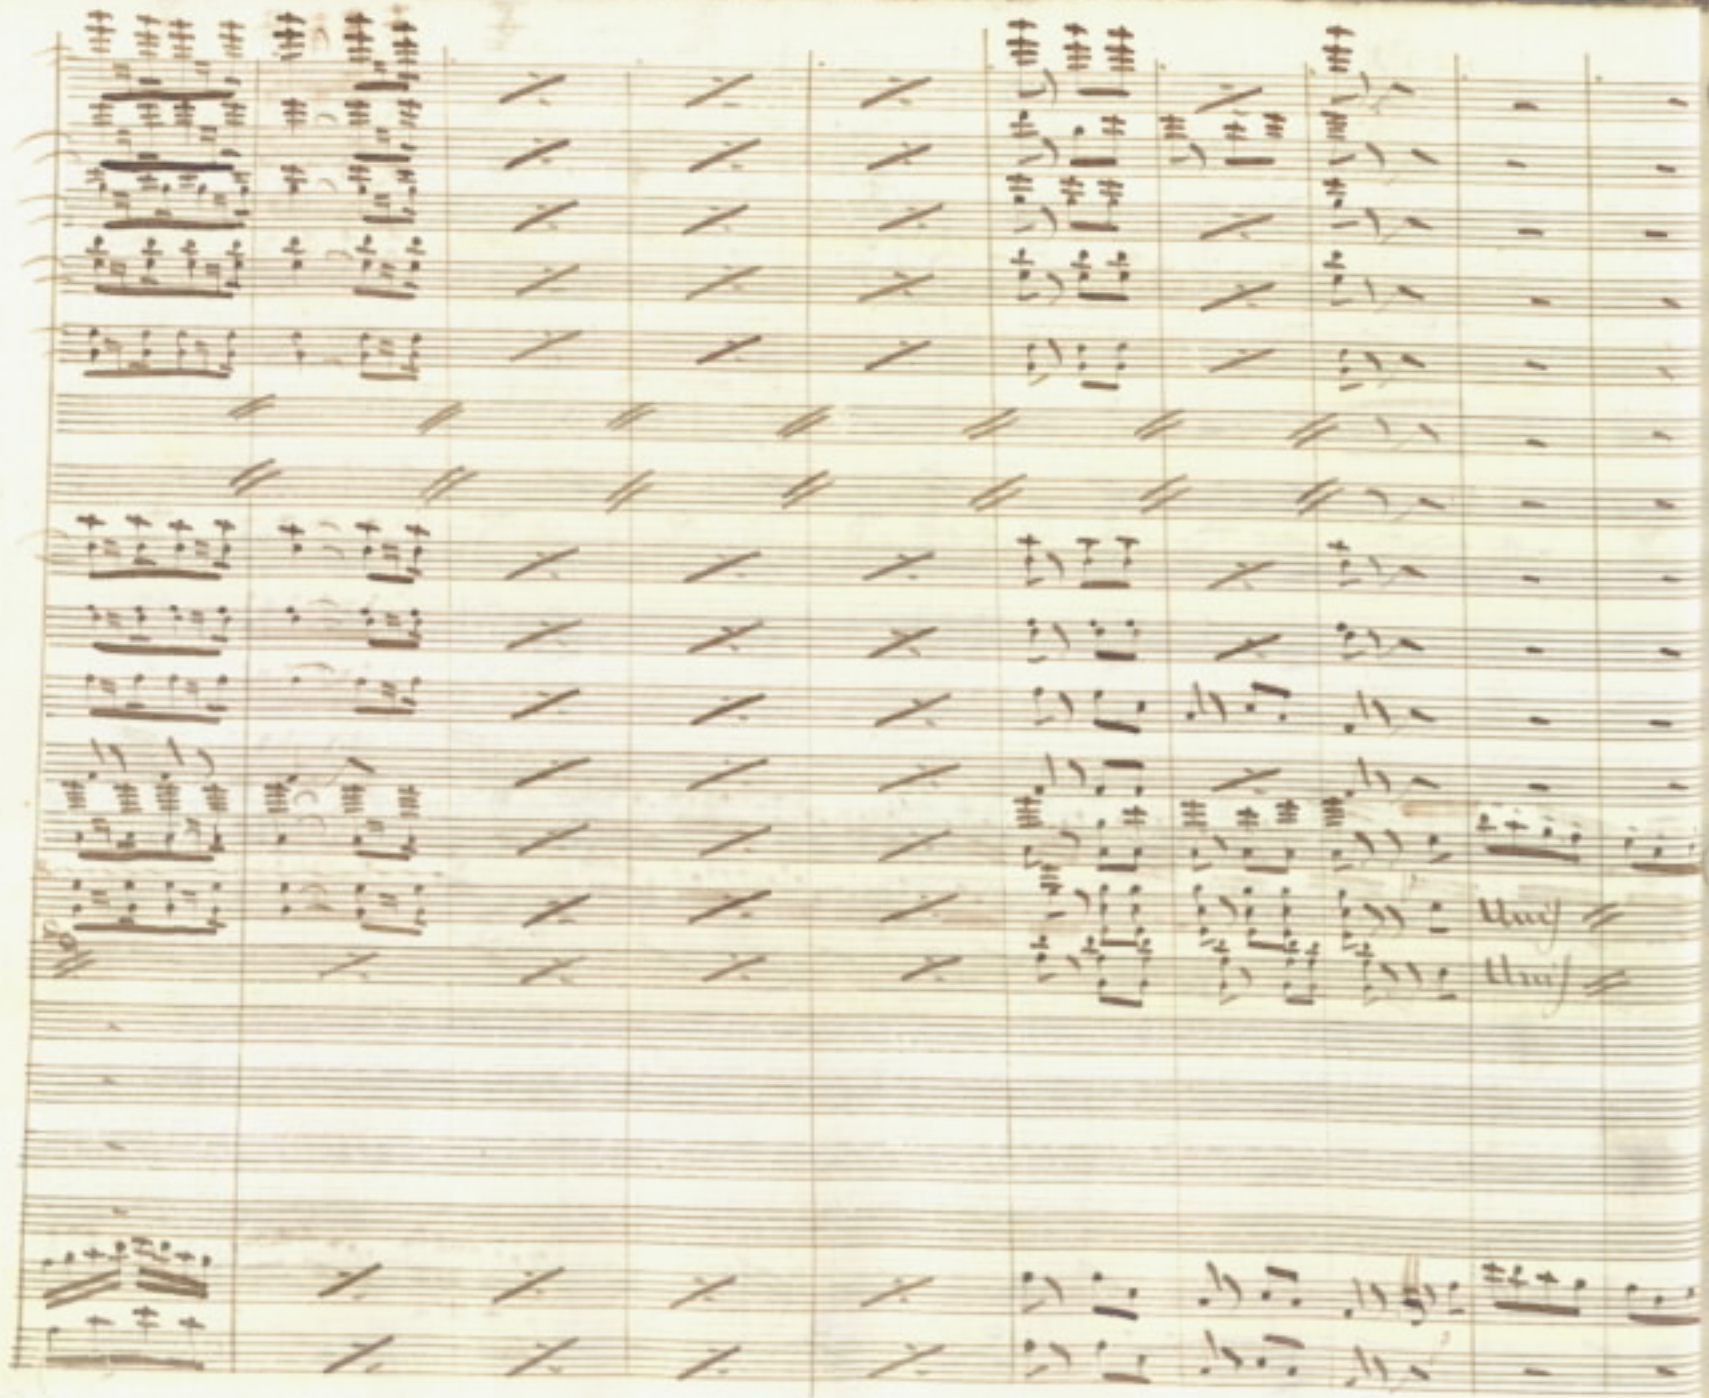 Unis
Unis